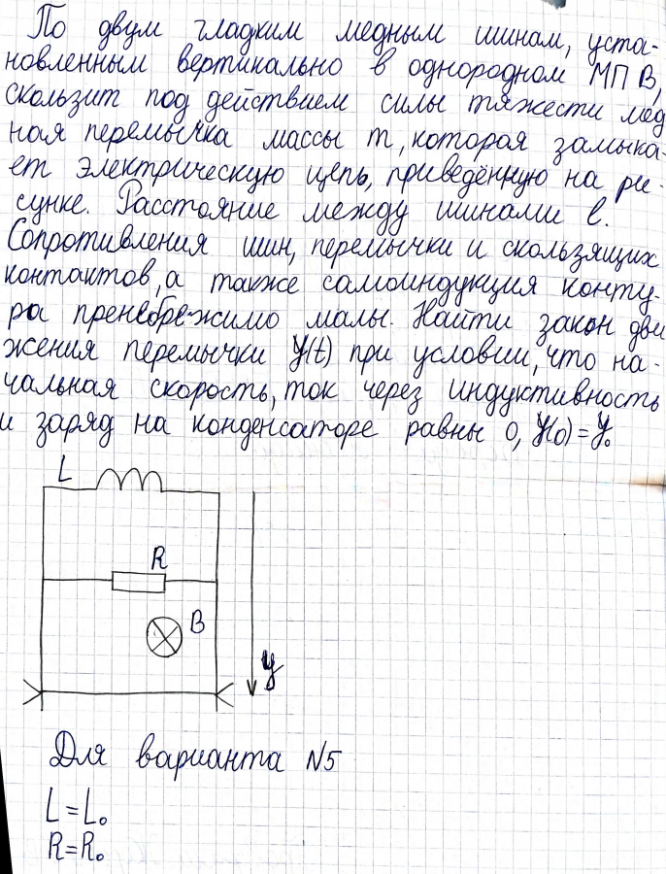 По двум гладким медным шинам, уста-
новленным вертикально в однородном МП В,
скользит под действием силы тяжести мед
ная перемычка массы m, которая замыка-
ет электрическую цепь, приведённую на ри-
сунке. Расстояние между шинами l.
Сопротивления шин, перемычки и скользящих
контактов, а также самоиндукция конту-
ра пренебрежимо малы. Найти закон дви
жения перемычки y(t) при условии, что на-
чальная скорость, ток через индуктивность
и заряд на конденсаторе равны 0, y(0)=y₀
L
R
B
y
Для варианта N5
L=L₀
R=R₀